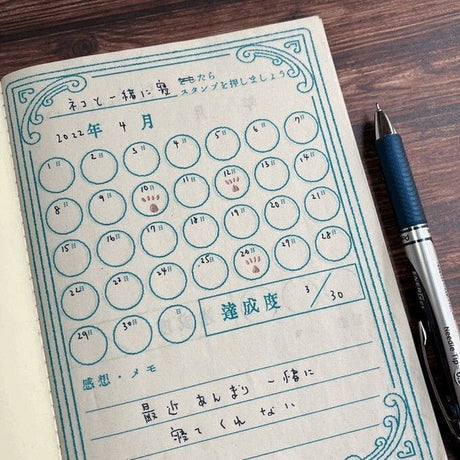 ネコと一緒に寝たら
スタンプを押しましょう
2022年 4 月
1日 2日 3日 4日 5日 6日 7日
8日 9日 10日 11日 12日 13日 14日
15日 16日 17日 18日 19日 20日 21日
22日 23日 24日 25日 26日 27日 28日
29日 30日 日
達成度 3/30
感想・メモ
最近あんまり一緒に
寝てくれない
Needle-Tip